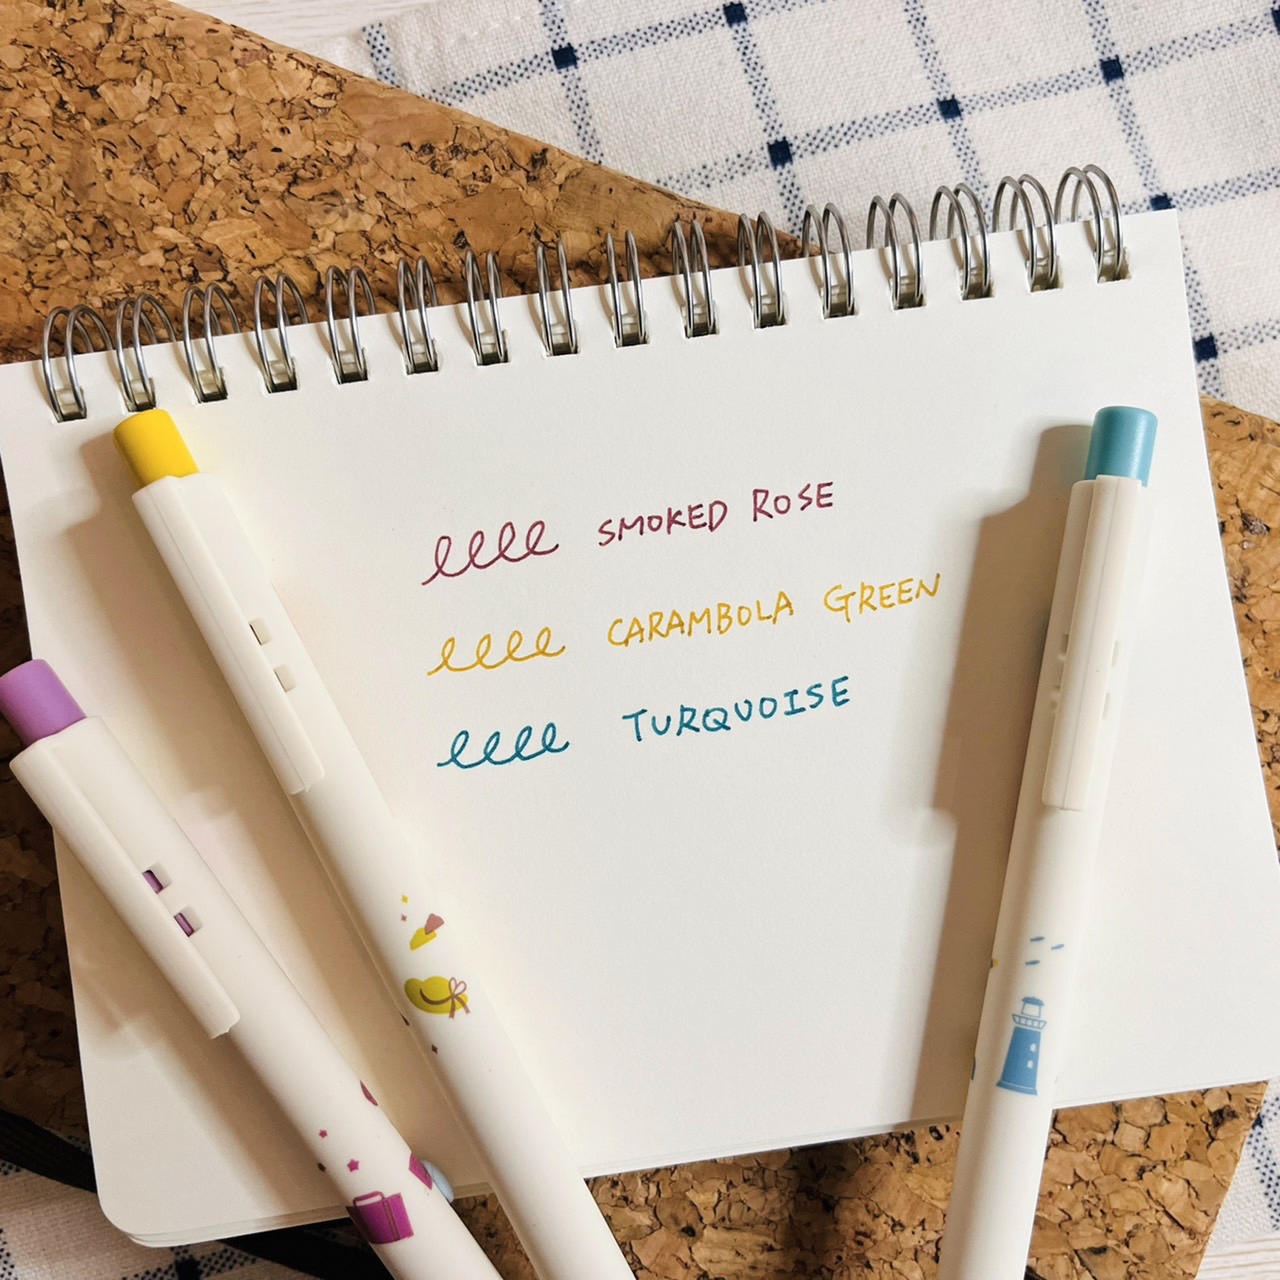 SMOKED ROSE
CARAMBOLA GREEN
TURQUOISE